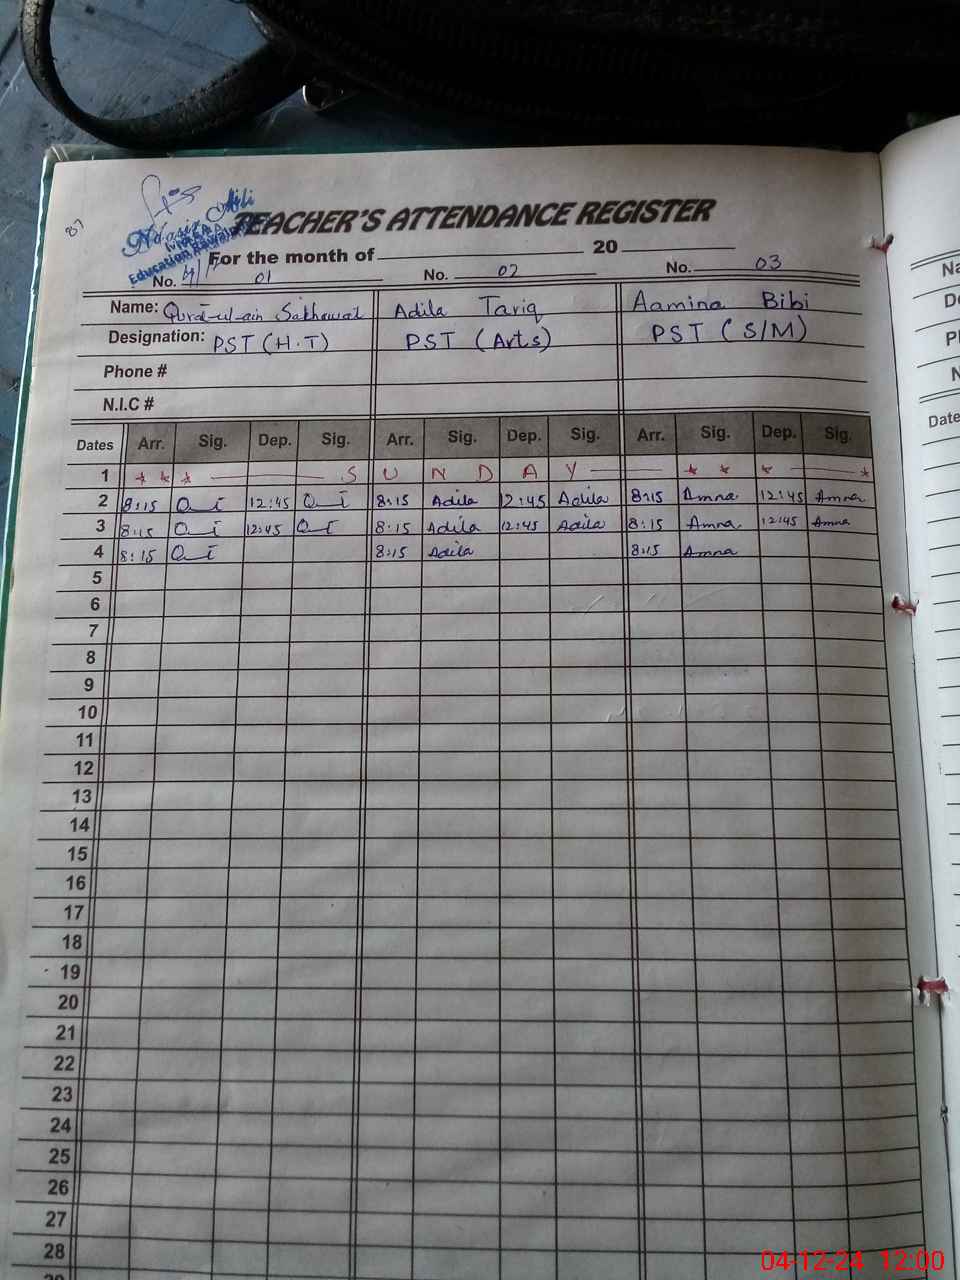 87
Ndasir Ali
TEACHER'S ATTENDANCE REGISTER
For the month of 20
No. 01 No. 02 No. 03
Name: Qurat-ul-ain Sakhawat Adila Tariq Aamina Bibi
Designation: PST (H.T) PST (Arts) PST (S/M)
Phone #
N.I.C #
Dates Arr. Sig. Dep. Sig. Arr. Sig. Dep. Sig. Arr. Sig. Dep. Sig.
1 * * * S U N D A Y * * * *
2 8:15 12:45 8:15 Adila 12:45 Adila 8:15 Amna 12:45 Amna
3 8:15 12:45 8:15 Adila 12:45 Adila 8:15 Amna 12:45 Amna
4 8:15 8:15 Adila 8:15 Amna
5
6
7
8
9
10
11
12
13
14
15
16
17
18
19
20
21
22
23
24
25
26
27
28
Na
De
Dates
04-12-24 12:00